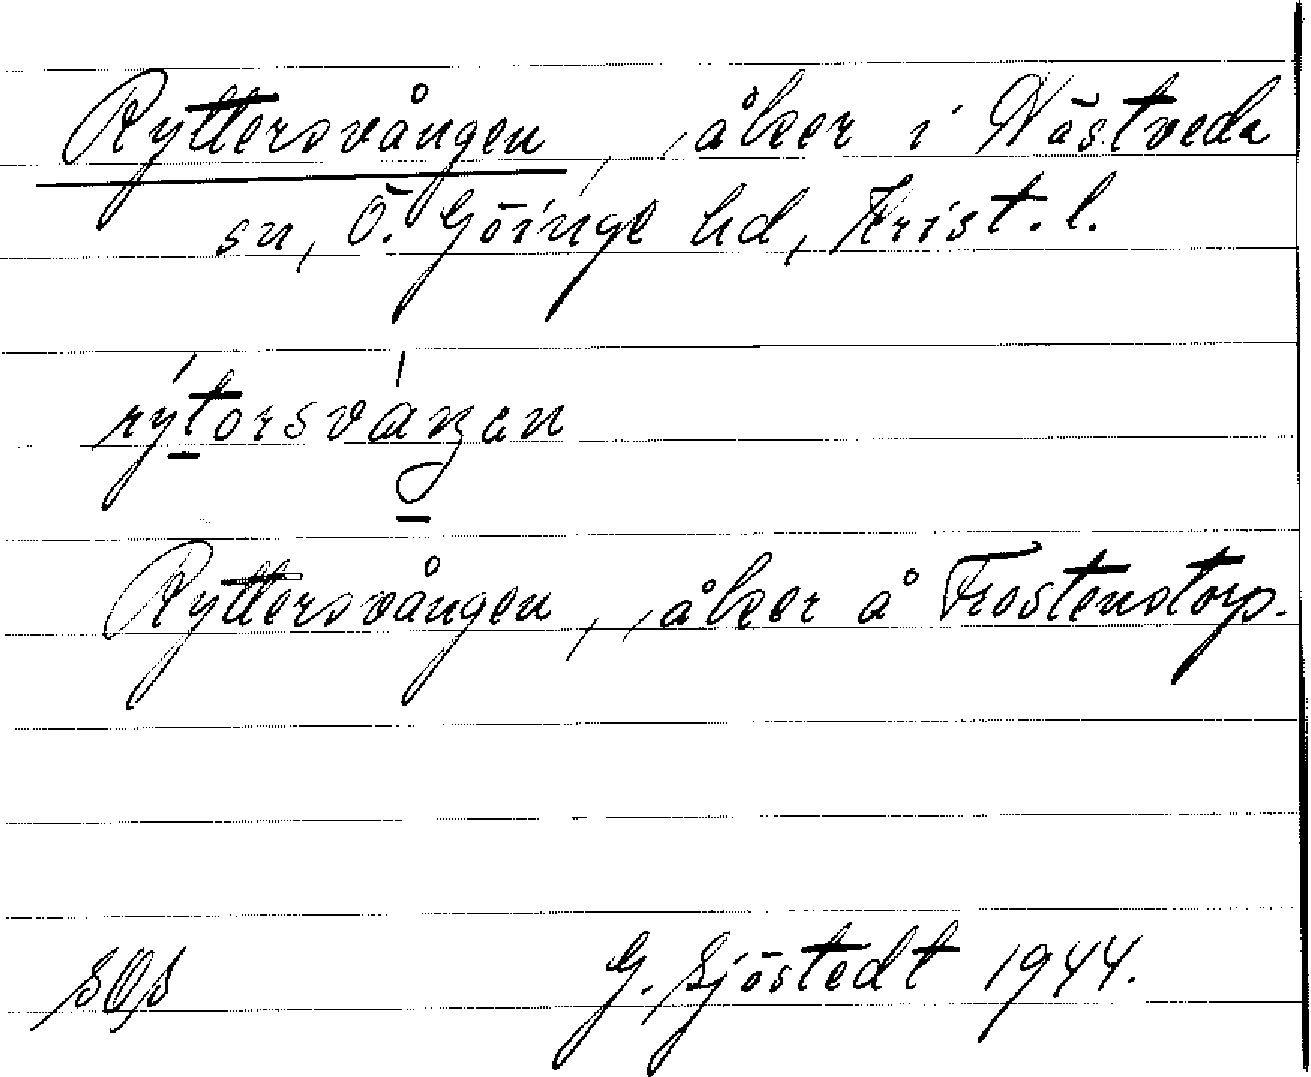 Ryttersvången, åker i Nöstveda
sn, Ö. Göinge hd, Krist. l.
Ryttersvången, åker å Frostenstorp.
G. Sjöstedt 1944.